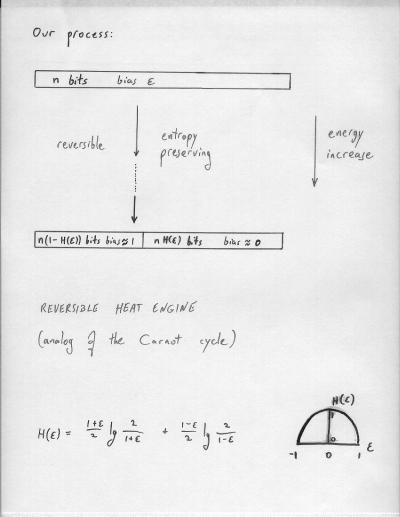 Our process:
n bits bias ε
reversible
entropy
preserving
energy
increase
n(1-H(ε)) bits bias≈1
n H(ε) bits bias ≈ 0
REVERSIBLE HEAT ENGINE
(analog of the Carnot cycle)
H(ε) = (1+ε)/2 lg 2/(1+ε) + (1-ε)/2 lg 2/(1-ε)
H(ε)
1
0
-1 0 1 ε